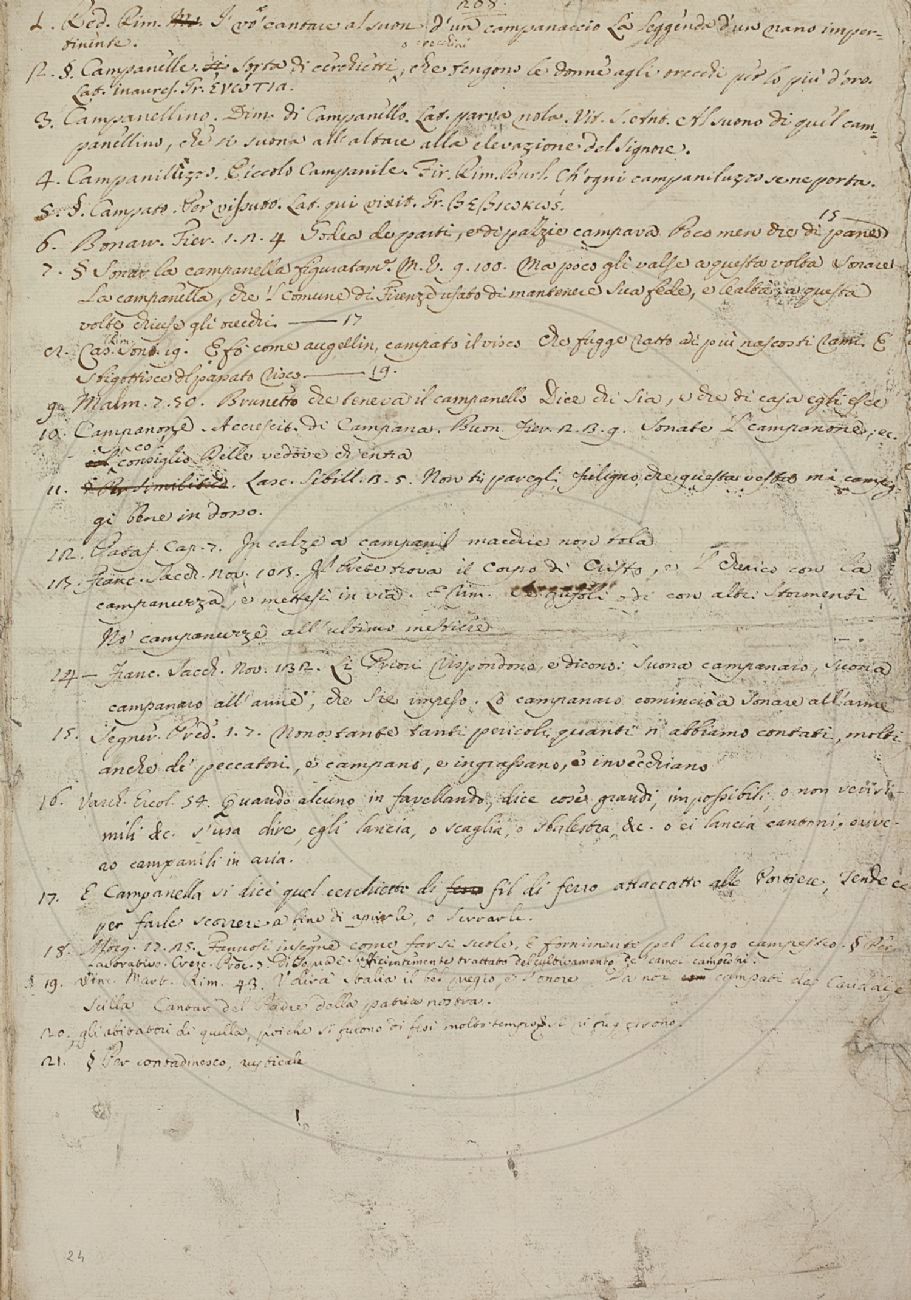 208.
1. Red. Rim. I' vo' cantare al suon d'un campanaccio La leggenda d'un nano imper-
tinente.
o orecchini
2. §. Campanelle. Sorta di cerchietti, che tengono le donne agli orecchi per lo più d'oro.
Lat. inaures. Gr. ἐνώτια.
3. Campanellino. Dim. di Campanello. Lat. parva nola. Vit. S. Ant. Al suono di quel cam-
panellino, che si suona all'altare alla elevazione del Signore.
4. Campaniluzzo. Piccolo Campanile. Fir. Rim. Burl. Ch'ogni campaniluzzo se ne porta.
5. §. Campato. Per vissuto. Lat. qui vixit. Gr.
15
6. Bonarr. Fier. 1. 2. 4 e di pazzie campava Poco men che di pane
7. § Sonar la campanella figuratam. M. V. 9. 100. Ma poco gli valse a questa volta sonare
La campanella, che 'l Comune di Firenze usato di mantenere sua fede, e lealtà, a questa
volta chiuse gli orecchi. — 17
8. Cas. Son. 19. E fo come augellin, campato il visco che fugge ratto ai più nascosti rami. E
sbigottisce del passato risco. — 19.
9. Malm. 7. 50. Brunetto che teneva il campanello Dice chi sia, e che di casa egli esce
10. Campanone. Accrescit. di Campana. Buon. Fier. 2. 3. 9. Sonate 'l campanone, ec.
consiglio Delle vedove ch'entra
11. Lasc. Sibill. 3. 5. Non ti paregli, figliuolo, che questa vesta mi campeg-
gi bene in dosso.
12. Pataf. Cap. 7. In calze a campanil macchie non tola
13. Franc. Sacch. Nov. 103. Il Prete trova il Corpo di Cristo, e 'l cherico con la
campanuzza, e mettesi in via. con altri stormenti
No' campanuzze all'ultimo mestiere
14 — Franc. Sacch. Nov. 132. Li Priori rispondono, e dicono: suona campanaio, suona
campanaio all'arme, che sie impeso. Lo campanaro cominciò a sonare all'arme
15. Segner. Pred. 1. 7. Nonostante tanti pericoli, quanti n'abbiamo contati, molti
anche de' peccatori, e campano, e ingrassano, e invecchiano
16. Varch. Ercol. 54. Quando alcuno in favellando, dice cose grandi, impossibili o non verisi-
mili &c. s'usa dire, egli lancia, o scaglia, o sbalestra, &c. o ei lancia cantoni, ovve-
ro campanili in aria.
17. E Campanella si dice quel cerchietto di ferro fil di ferro attaccatto alle Portiere, Tende ec
per farle scorrere a fine di aprirle, o serrarle.
18. Morg. 17. 25. Fannosi insegne come far si suole, E fornimento pel luogo campestro. § Per
Lavorativo. Cresc. Proe. 7 sufficientemente trattato del cultivamento de' campi campestri.
19. Vinc. Mart. Rim. 43. Udirà Italia il bel pregio, e l'onore Da noi campati da Cariddi e
Scilla Cantar del Padre della patria nostra.
20. gli abitatori di quella, poiché si furono difesi molto tempo, si fuggirono.
21. § Per contadinesco, rusticale
24